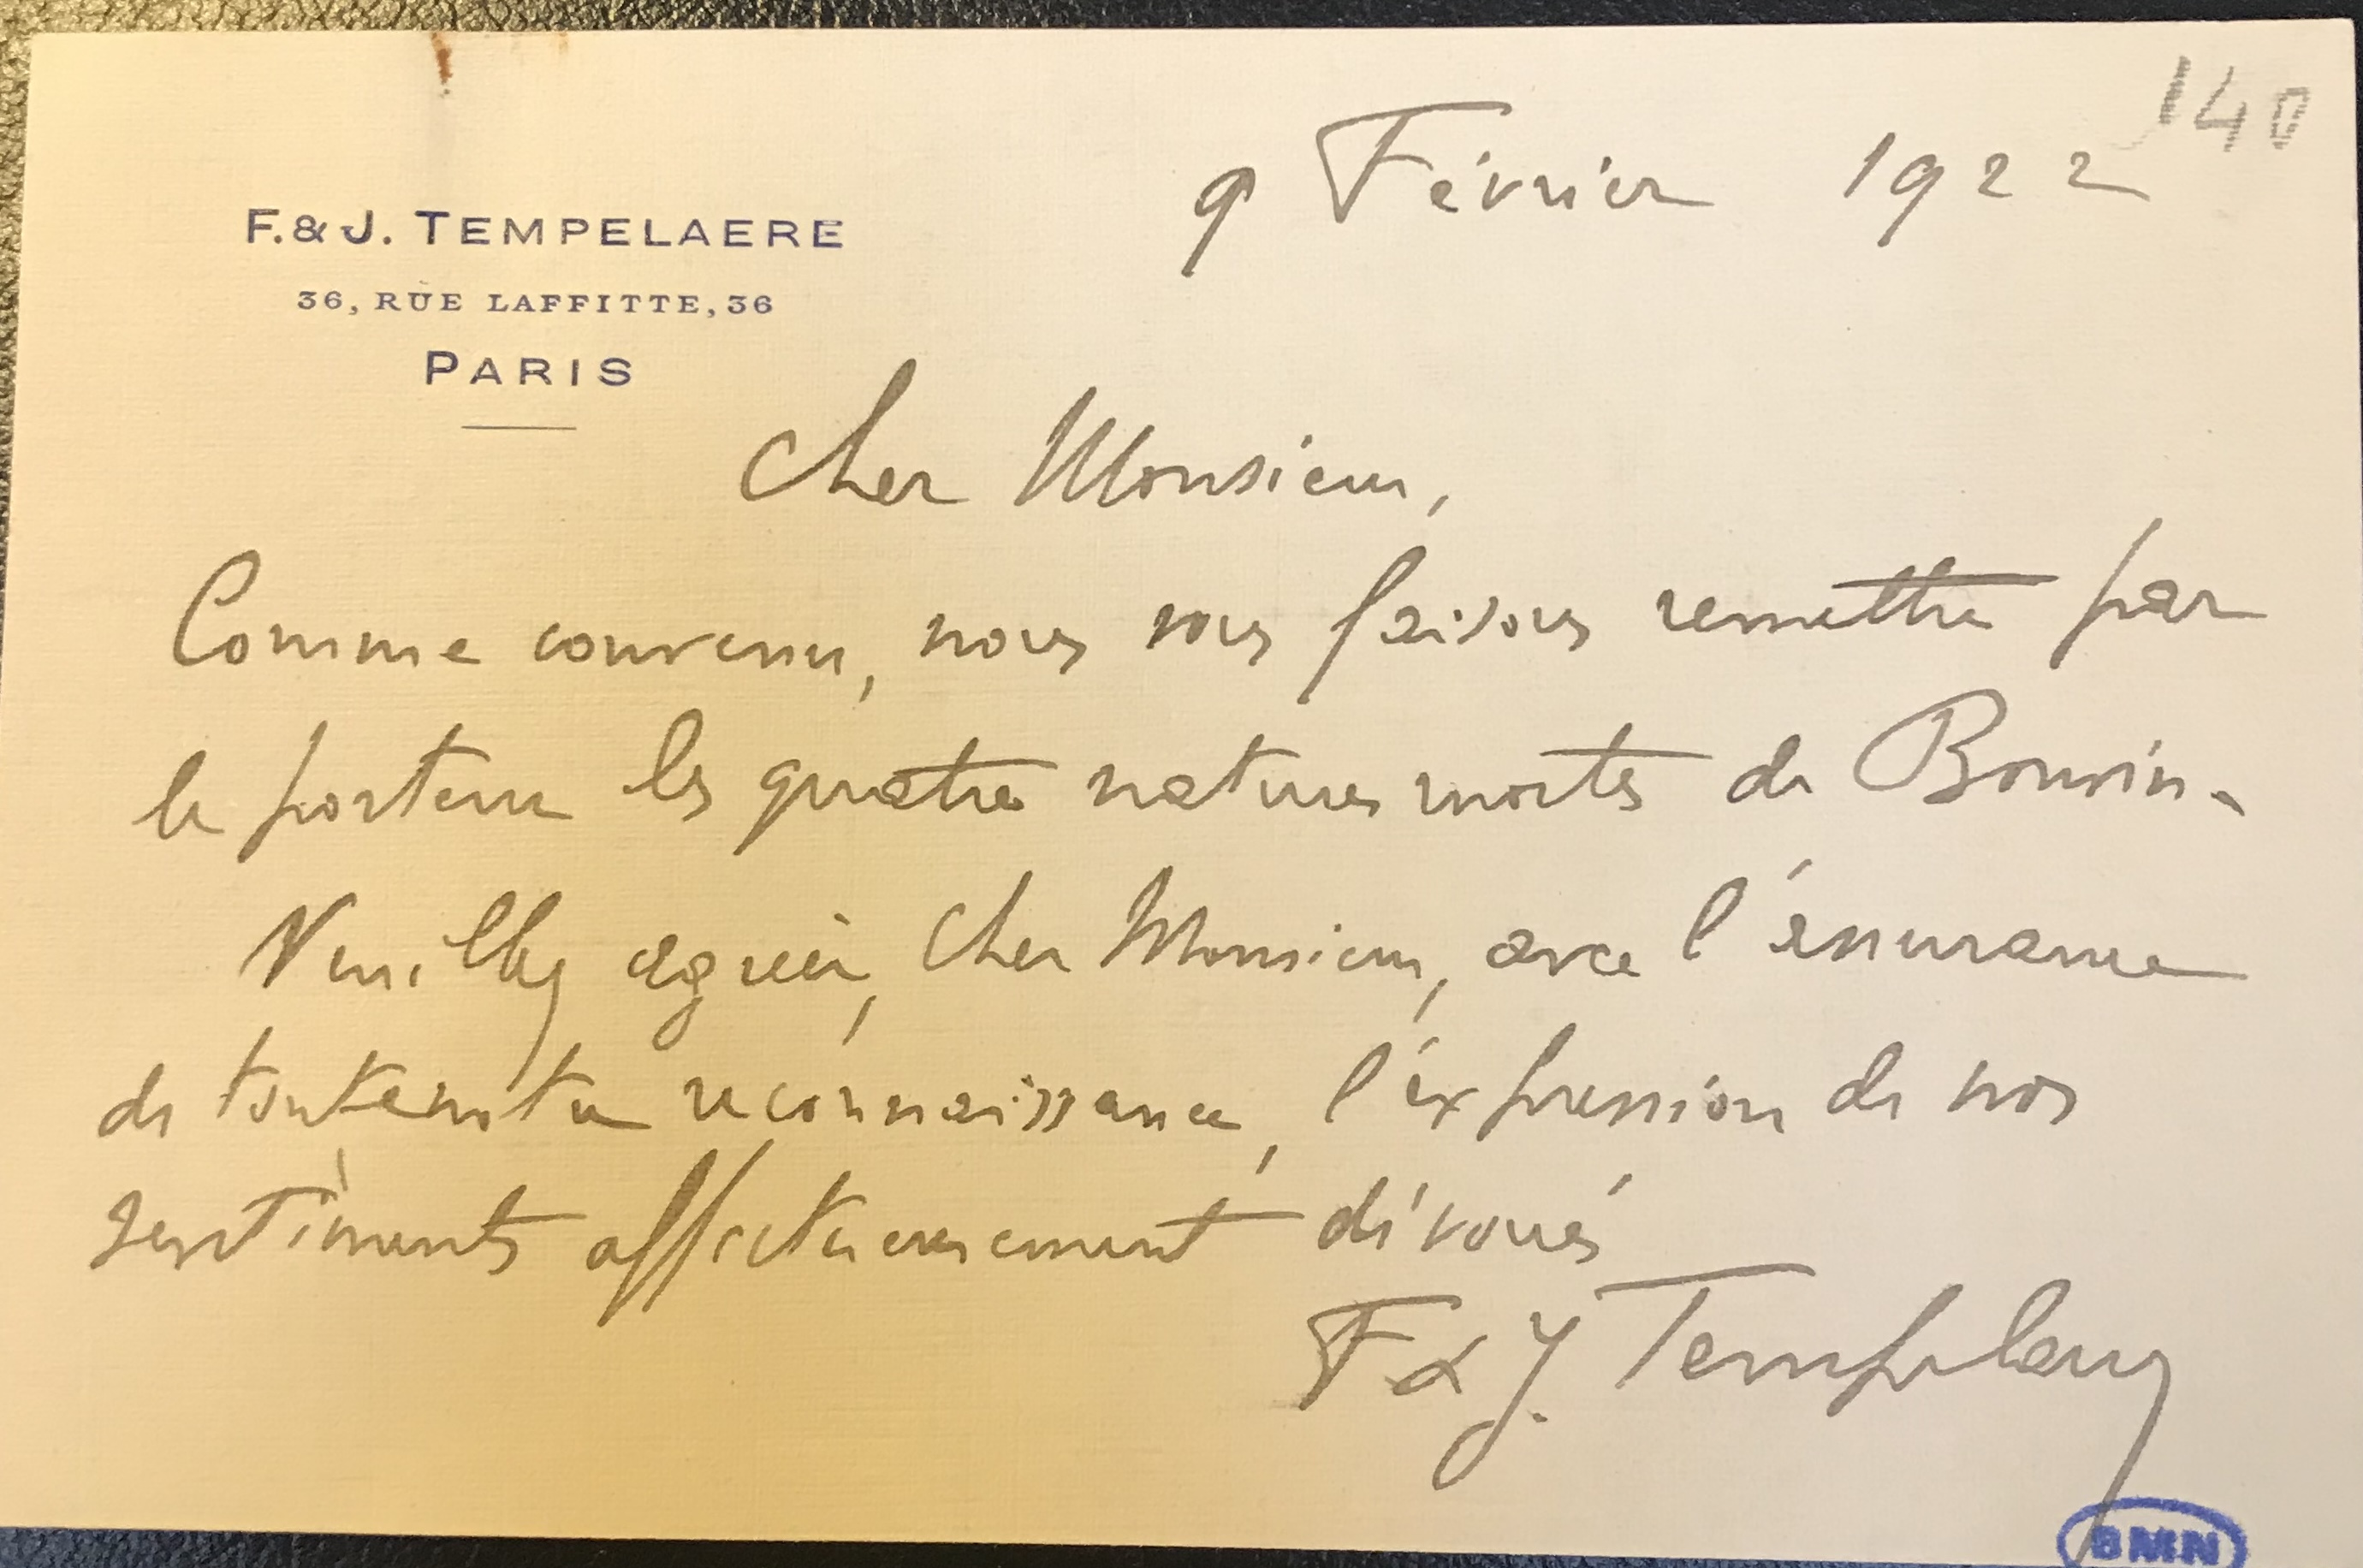 140
9 Février 1922
F. & J. TEMPELAERE
36, RUE LAFFITTE, 36
PARIS
Cher Monsieur,
Comme convenu, nous vous faisons remettre par
le porteur les quatre natures mortes de Bonvin.
Veuillez agréer, Cher Monsieur, avec l'assurance
de toute notre reconnaissance, l'expression de nos
sentiments affectueusement dévoués
F & J. Tempelaere
BMN